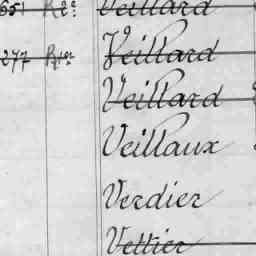 651 R2e Veillard
277 Rte Veillard
Veillard
Veillaux
Verdier
Vettier